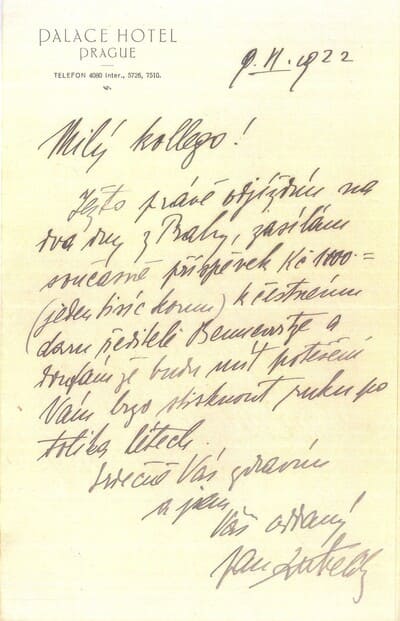 PALACE HOTEL
PRAGUE
TELEFON 4080 Inter., 5726, 7510.
9. II. 1922
Milý kollego!
Ježto právě odjíždím na
dva dny z Prahy, zasílám
současně příspěvek Kč 1000·=
(jeden tisíc korun) k čestnému
daru řediteli Bennewitze a
doufám že budu mít potěšení
Vám brzo stisknout ruku po
tolika létech.
Srdečně Vás zdravím
a jsem
Váš oddaný
Jan Kubelík